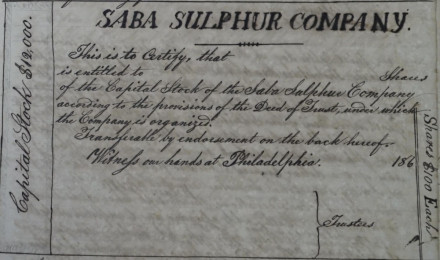 SABA SULPHUR COMPANY.
This is to Certify, that
is entitled to Shares
of the Capital Stock of the Saba Sulphur Company
according to the provisions of the Deed of Trust, under which
the Company is organized.
Transferable by endorsment on the back hereof.
Witness our hands at Philadelphia. 186
Trustees
Capital Stock $12,000.
Shares $100 Each